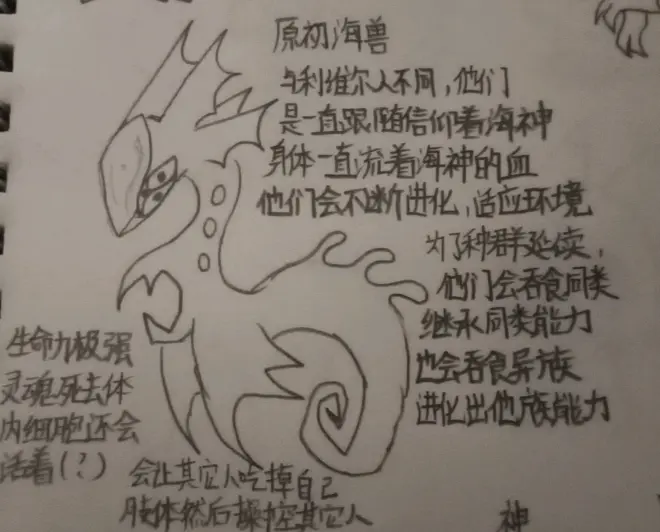 原初海兽
与利维尔人不同,他们
是一直跟随信仰着海神
身体一直流着海神的血
他们会不断进化,适应环境
为了种群延续,
他们会吞食同类
继承同类能力
也会吞食异族
进化出他族能力
生命力极强
灵魂死去体
内细胞还会
活着(?)
会让其它人吃掉自己
肢体然后操控其它人
神